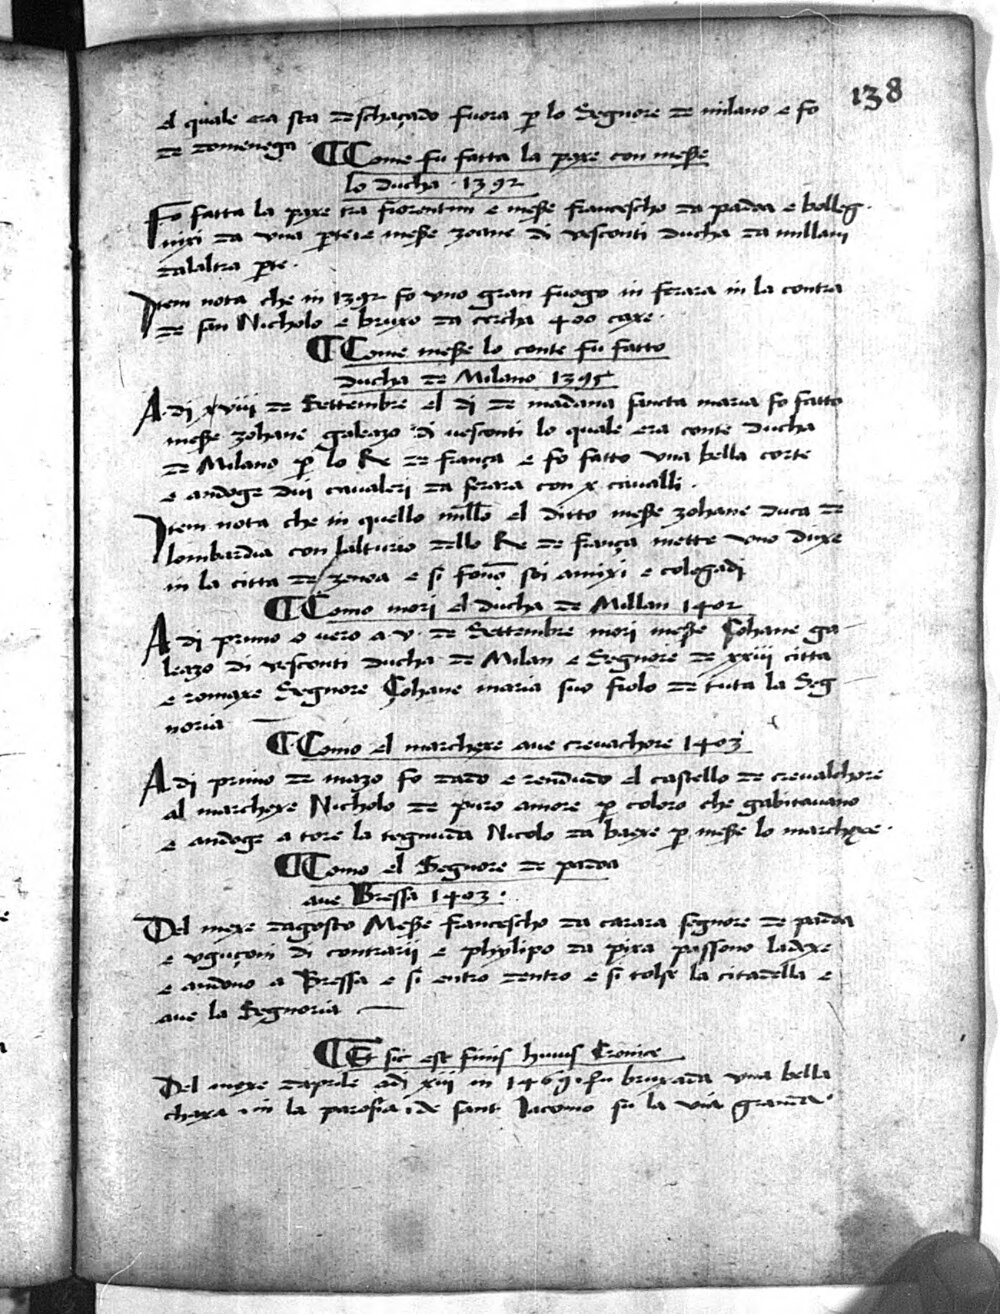 138
el quale era sta deschaçado fuora p lo Segnore de milano e fo
de domenega
Come fu fatta la paxe con messe
lo ducha · 1392
Fo fatta la paxe tra fiorentini e messe francescho da padoa e bolleg
nixi da una pte e messe zoane di vesconti ducha da millan
dalaltra pte ·
Item nota che in 1392 fo uno gran fuogo in ferara in la contra
de san Nicholo e bruxo da cercha 400 caxe ·
Come messe lo conte fu fatto
ducha de Milano 1395
A di xviii de Settembre el di de madana sancta maria fo fatto
messe zohane galeazo di vesconti lo quale era conte ducha
de Milano p lo Re de frança e fo fatto una bella corte
e andoge dui cavaleri da ferara con x cavalli ·
Item nota che in quello el ditto messe zohane duca de
lombardia con lalturio dello Re de frança mette uno duxe
in la citta de zenoa e si fono soi amixi e colegadi
Como mori el ducha de Millan 1402
A di primo o vero a v · de Settembre mori messe Çohane ga
leazo di vesconti ducha de Milan e Segnore de xxiii citta
e romaxe Segnore Çohane maria suo fiolo de tuta la Seg
noria
Como el marchexe ave crevachore 1403
A di primo de mazo fo dado e rendudo el castello de crevalchore
al marchexe Nicholo de puro amore p coloro che gabitavano
e andoge a tore la tegnuda Nicolo da baexe p messe lo marchexe ·
Como el Segnore de padoa
ave Bressa 1403 ·
Del mexe dagosto Messe francescho da carara segnore de padoa
e uguçoni di contrarii e phylipo da pixa passono ladexe
e andono a Bressa e si entro dentro e si tolse la citadella e
ave la Segnoria
Et sic est finis huius Cronice
Del mexe daprile adi xiii in 1469 · fu bruxada una bella
chaxa · in la parosia · de sant Iacomo su la via granda ·